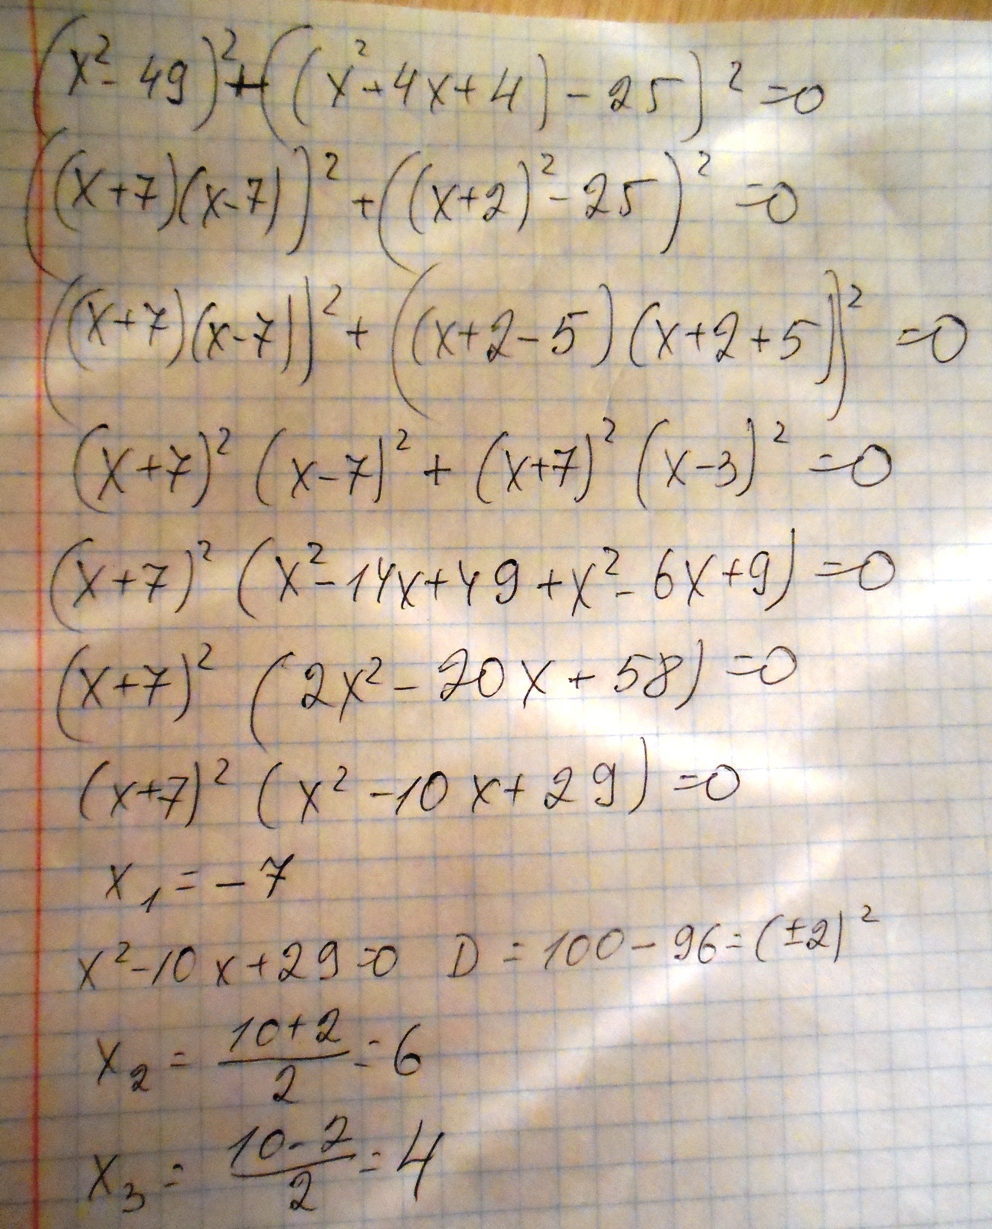 (x² - 49)² + ((x² + 4x + 4) - 25)² = 0
((x+7)(x-7))² + ((x+2)² - 25)² = 0
((x+7)(x-7))² + ((x+2-5)(x+2+5))² = 0
(x+7)² (x-7)² + (x+7)² (x-3)² = 0
(x+7)² (x² - 14x + 49 + x² - 6x + 9) = 0
(x+7)² (2x² - 20x + 58) = 0
(x+7)² (x² - 10x + 29) = 0
x₁ = -7
x² - 10x + 29 = 0 D = 100 - 96 = (±2)²
x₂ = (10+2)/2 = 6
x₃ = (10-2)/2 = 4